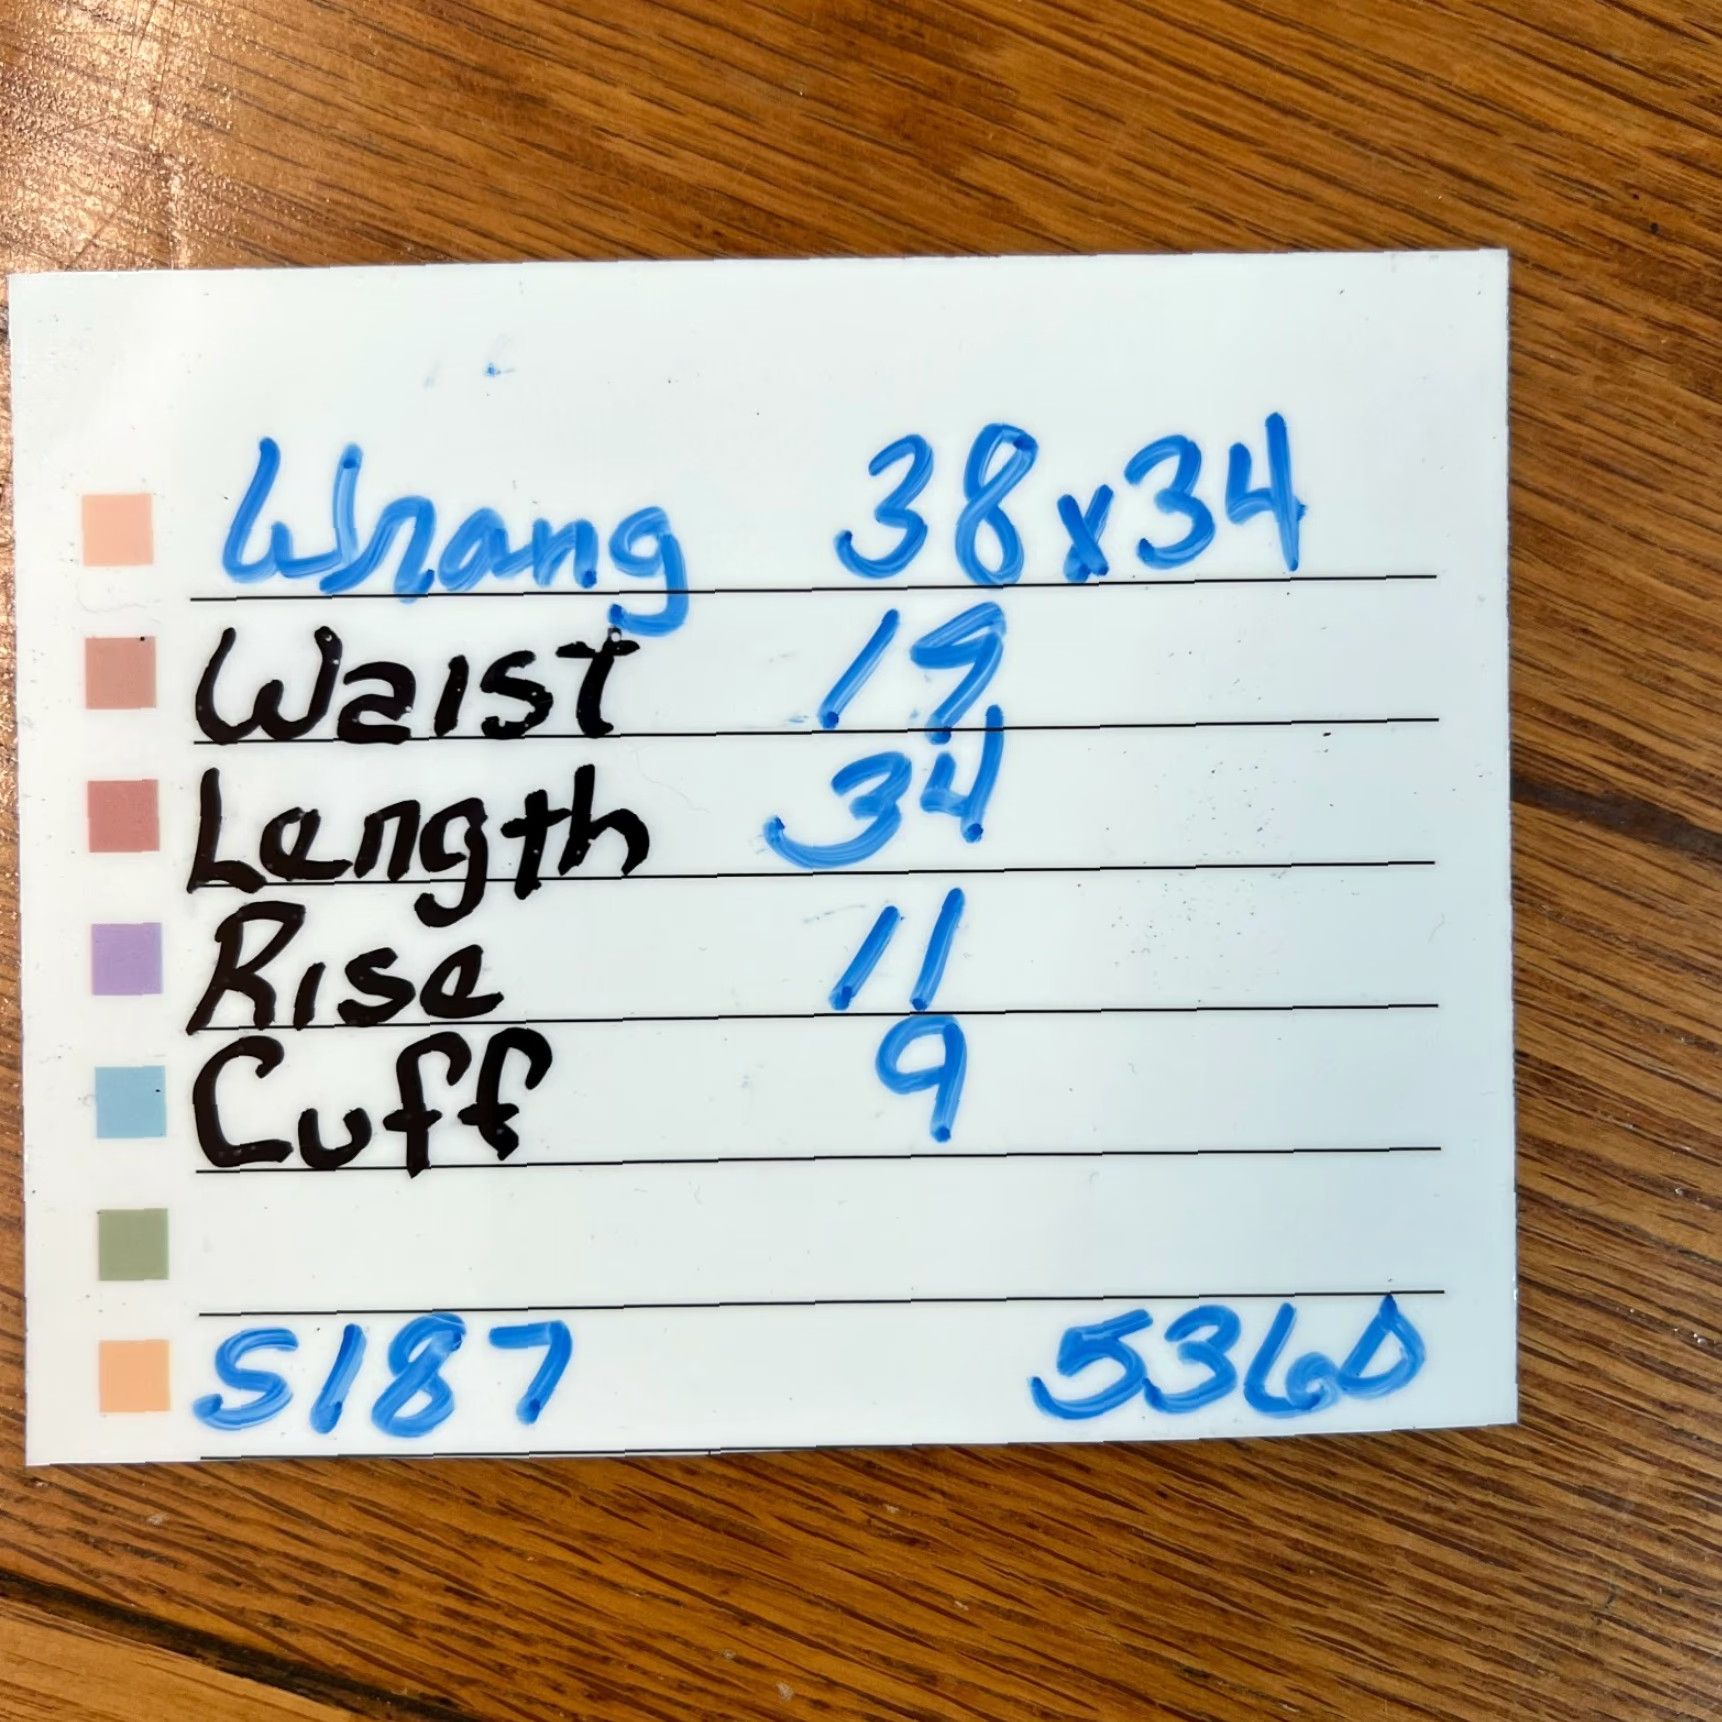 Wrang 38x34
Waist 19
Length 34
Rise 11
Cuff 9
S187 5360